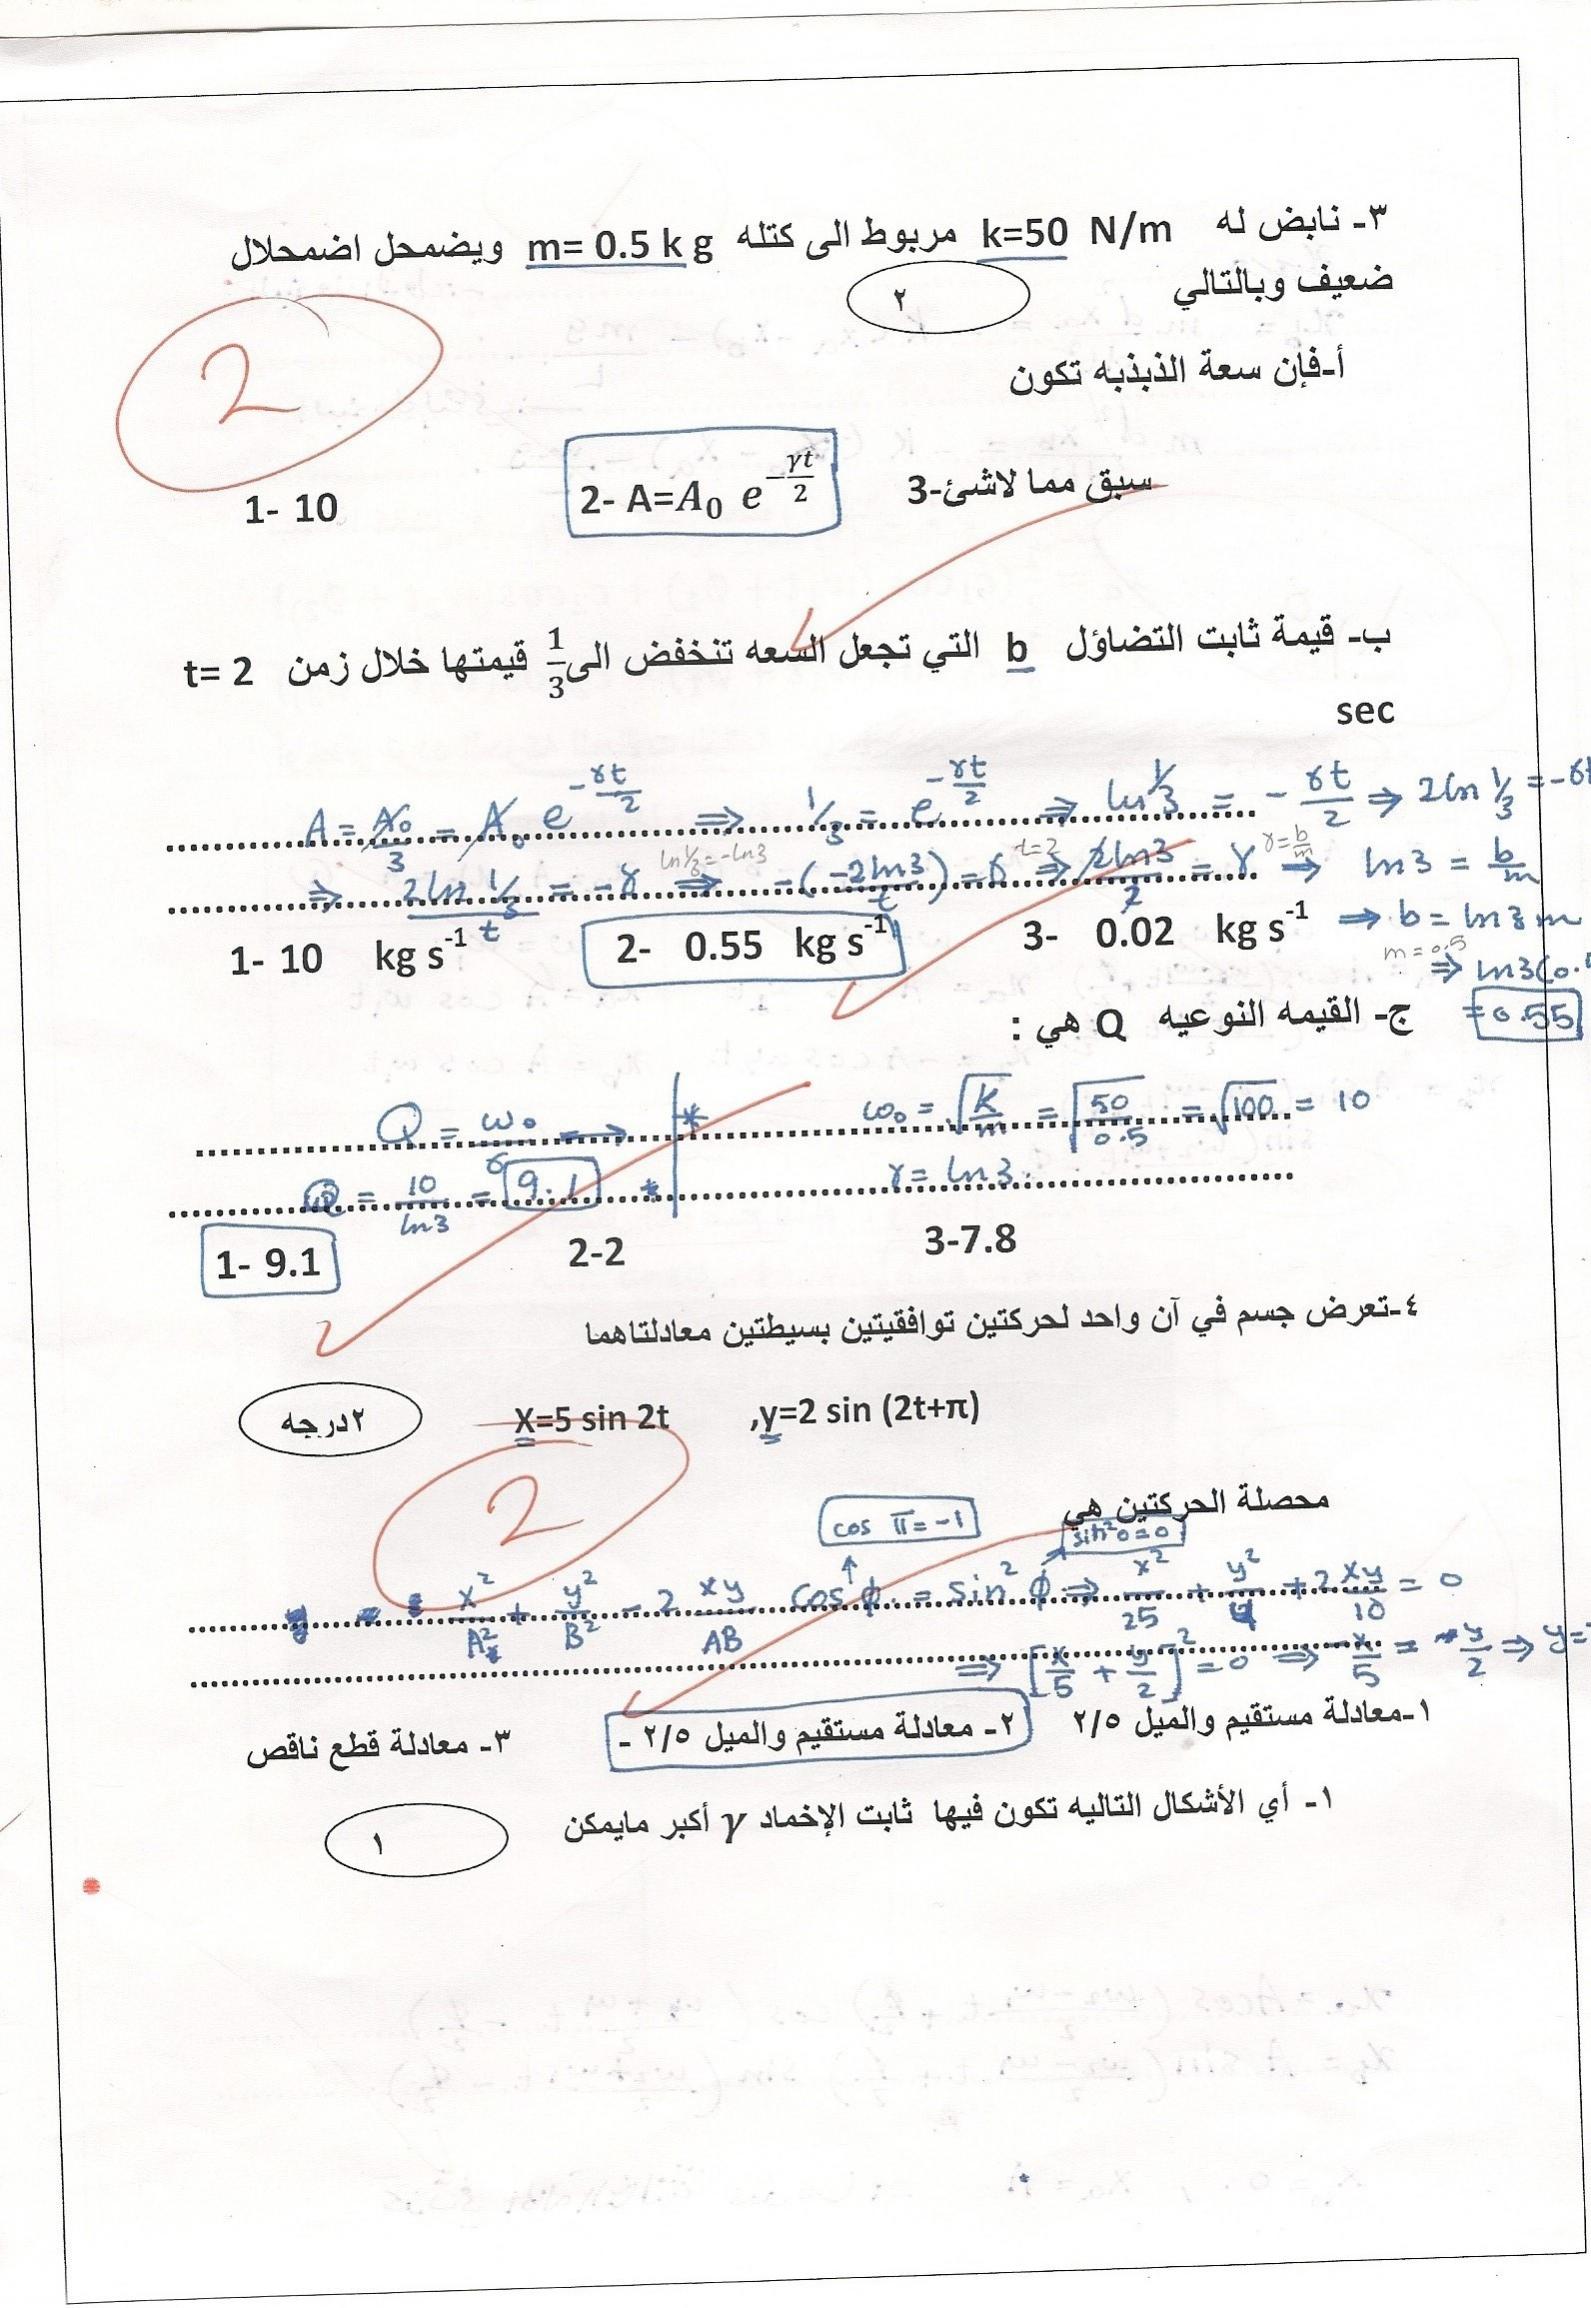 ٣- نابض له k=50 N/m مربوط الى كتله m= 0.5 k g ويضمحل اضمحلال
ضعيف وبالتالي
٢
2
أ-فإن سعة الذبذبه تكون
1- 10 2- A=A₀ e^(-γt/2) 3-سبق مما لاشئ
ب- قيمة ثابت التضاؤل b التي تجعل السعه تنخفض الى 1/3 قيمتها خلال زمن t= 2
sec
A = A₀/3 = A₀ e^(-γt/2) ⇒ 1/3 = e^(-γt/2) ⇒ ln 1/3 = - γt/2 ⇒ 2ln 1/3 = -γt
⇒ 2ln 1/3 / t = -γ ln 1/3 = -ln3 ⇒ -(-2ln3/t) = γ t=2 ⇒ 2ln3/2 = γ γ = b/m ⇒ ln3 = b/m
1- 10 kg s⁻¹ 2- 0.55 kg s⁻¹ 3- 0.02 kg s⁻¹ ⇒ b = ln3 m
m = 0.5 ⇒ ln3(0.
ج- القيمه النوعيه Q هي :
= 0.55
Q = ω₀/γ → * ω₀ = √(K/m) = √(50/0.5) = √100 = 10
Q = 10/ln3 = 9.1 * γ = ln3
1- 9.1 2-2 3-7.8
٤-تعرض جسم في آن واحد لحركتين توافقيتين بسيطتين معادلتاهما
٢درجه X=5 sin 2t ,y=2 sin (2t+π)
2
محصلة الحركتين هي
cos π = -1 sin² 0 = 0
x²/A² + y²/B² - 2 xy/AB cos φ = sin² φ ⇒ x²/25 + y²/4 + 2 xy/10 = 0
⇒ [x/5 + y/2]² = 0 ⇒ x/5 = -y/2 ⇒ y =
١-معادلة مستقيم والميل ٢/٥ ٢- معادلة مستقيم والميل ٢/٥ - ٣- معادلة قطع ناقص
١- أي الأشكال التاليه تكون فيها ثابت الإخماد γ أكبر مايمكن
١